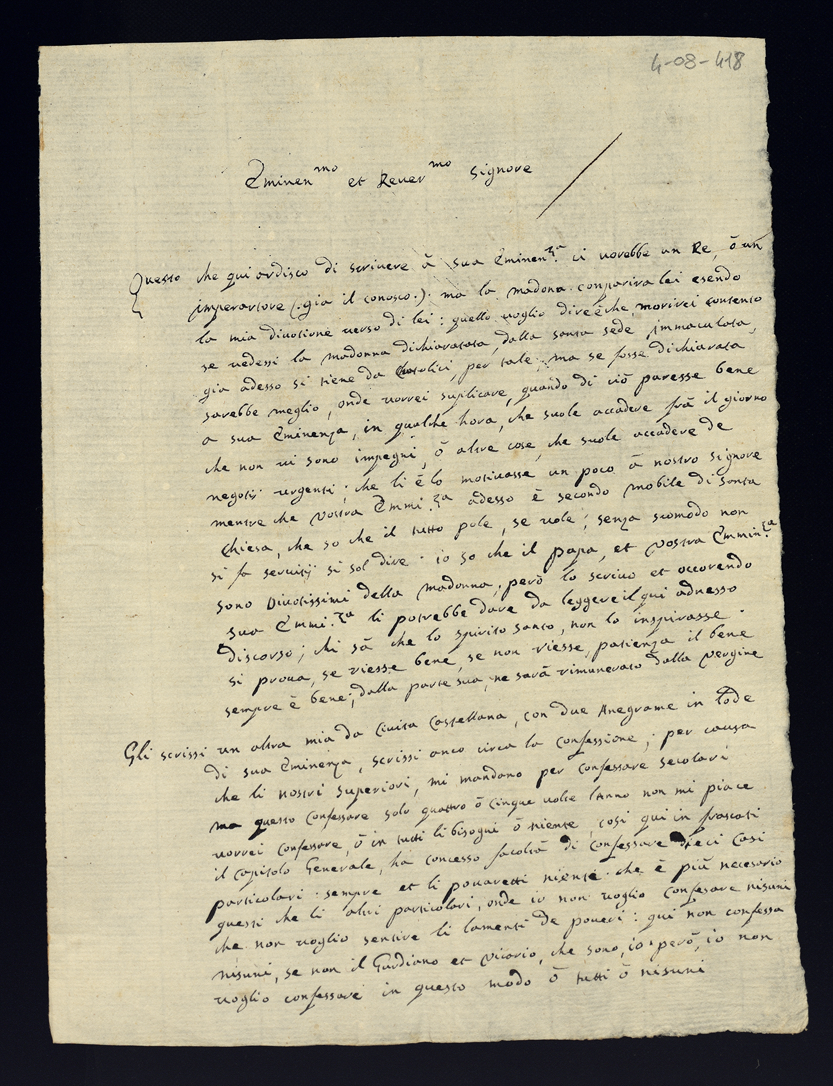 4-08-418
Eminen^mo et Reuer^mo Signore
Questo che qui ardisco di scriuere à sua Eminen^za. ci vorebbe un Re, ò un
imperartore (: gia il conosco :) ma la madona conparira lei esendo
la mia diuotione uerso di lei : quello uoglio dire è che, morirei contento
se uedessi la madonna dichiaratata, dalla santa sede immaculata,
gia adesso si tiene da Catolici, per tale, ma se fosse dichiarata
sarebbe meglio, onde uorrei suplicare, quando di ciò paresse bene
a sua Eminenza, in qualche hora, che suole accadere frà il giorno
che non ui sono impegni, ò altre cose, che suole accadere de
negotij urgenti ; che li è lo motiuasse un poco à nostro signore
mentre che Vostra Emmi.^za adesso è secondo mobile di santa
Chiesa, che so che il tutto pole, se uole ; senza scomodo non
si fa seruitij si sol dire : io so che il papa, et Vostra Emmin.^za
sono Diuotissimi della madonna, però lo scriuo et occorendo
sua Emmi.^za li potrebbe dare da leggere il qui adnesso
discorso ; chi sà che lo spirito santo, non lo inspirasse :
si proua, se riesse bene, se non riesse, patienza il bene
sempre è bene ; dalla parte sua, ne sarà rimunerato dalla Vergine
Gli scrissi un altra mia da Ciuita Castellana, con due Anegrame in lode
di sua Eminenza, scrissi anco circa la confessione ; per causa
che li nostri superiori, mi mandano per confessare secolari
ma questo confessare solo quattro ò cinque uolte l'Anno non mi piace
uorrei confessare, ò in tutti li bisogni ò niente, cosi qui in frascati
il capitolo Generale, ha concesso facoltà di confessare dieci Casi
particolari sempre et li pouaretti niente che è più necesario
questi che li altri particolari, onde io non uoglio confesare nisuni
che non uoglio sentire li lamenti de poueri : qui non confessa
nisuni, se non il Gurdiano et Vicario, che sono, io però, io non
uoglio confessare in questo modo ò tutti ò nisuni